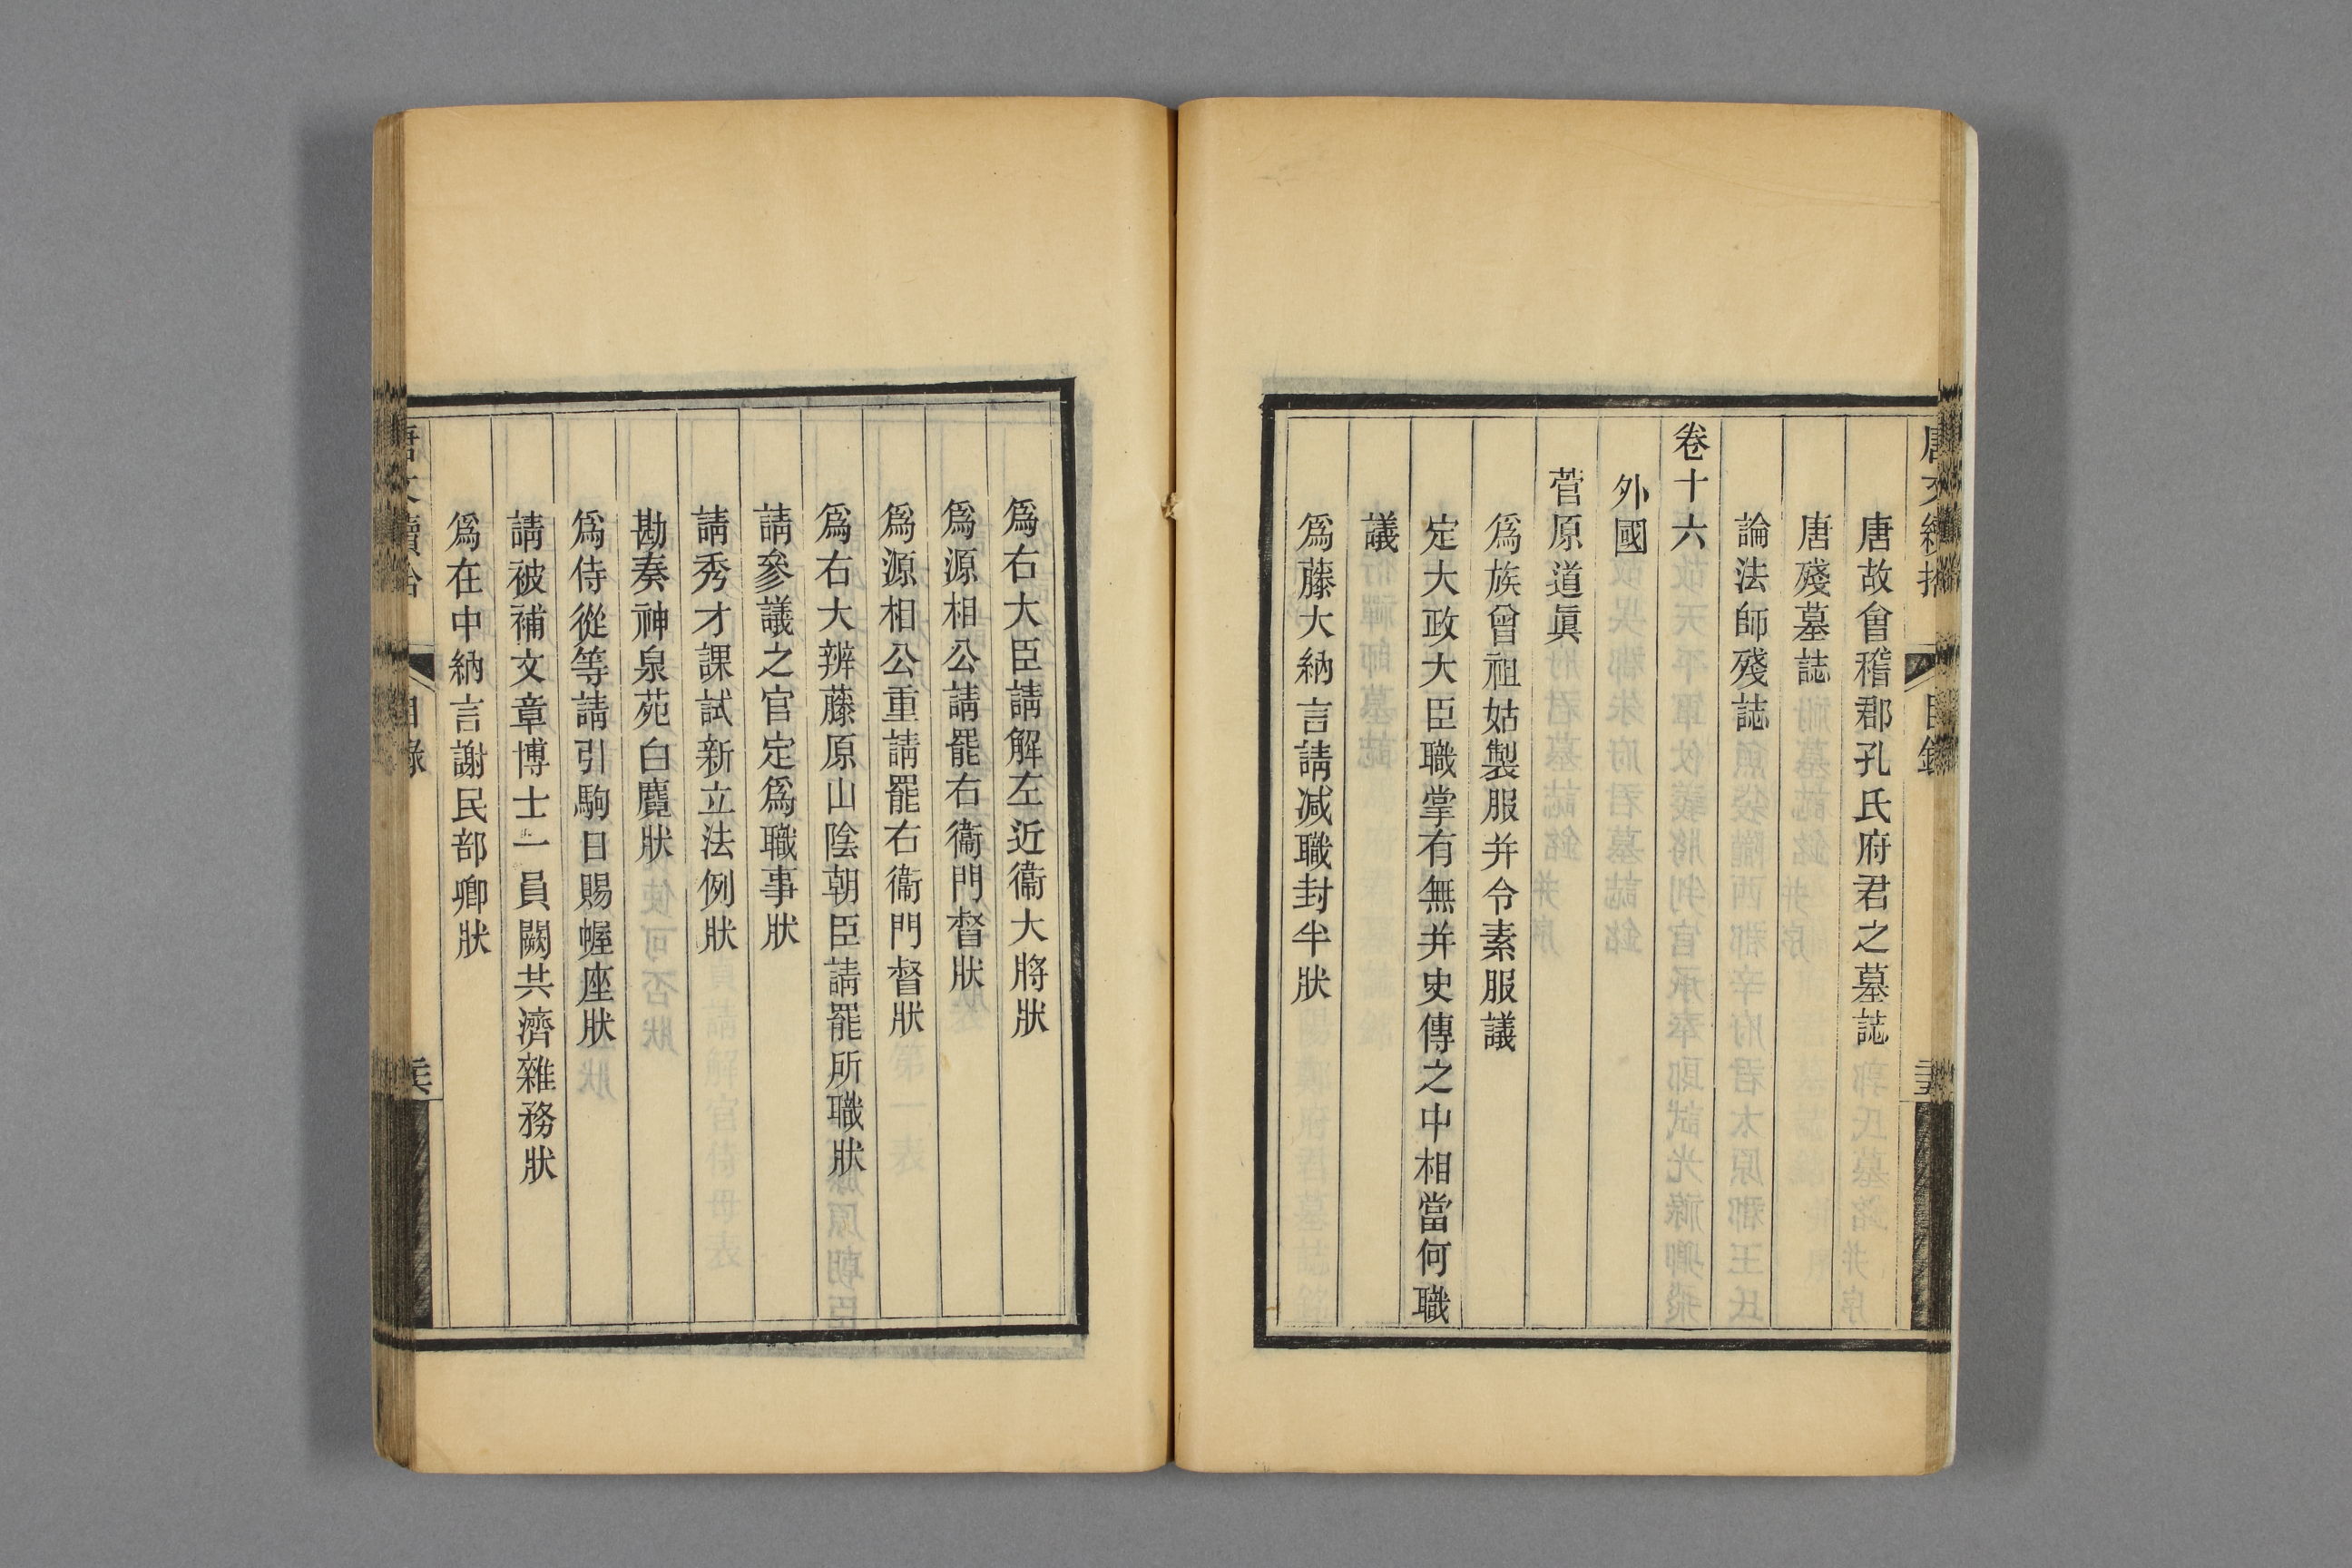 唐故會稽郡孔氏府君之墓誌
唐殘墓誌
論法師殘誌
卷十六
外國
菅原道眞
爲族曾祖姑製服并令素服議
定大政大臣職掌有無并史傳之中相當何職
議
爲藤大納言請減職封半狀
爲右大臣請解左近衞大將狀
爲源相公請罷右衞門督狀
爲源相公重請罷右衞門督狀
爲右大辨藤原山陰朝臣請罷所職狀
請參議之官定爲職事狀
請秀才課試新立法例狀
勘奏神泉苑白麞狀
爲侍從等請引駒日賜幄座狀
請被補文章博士一員闕共濟雜務狀
爲在中納言謝民部卿狀